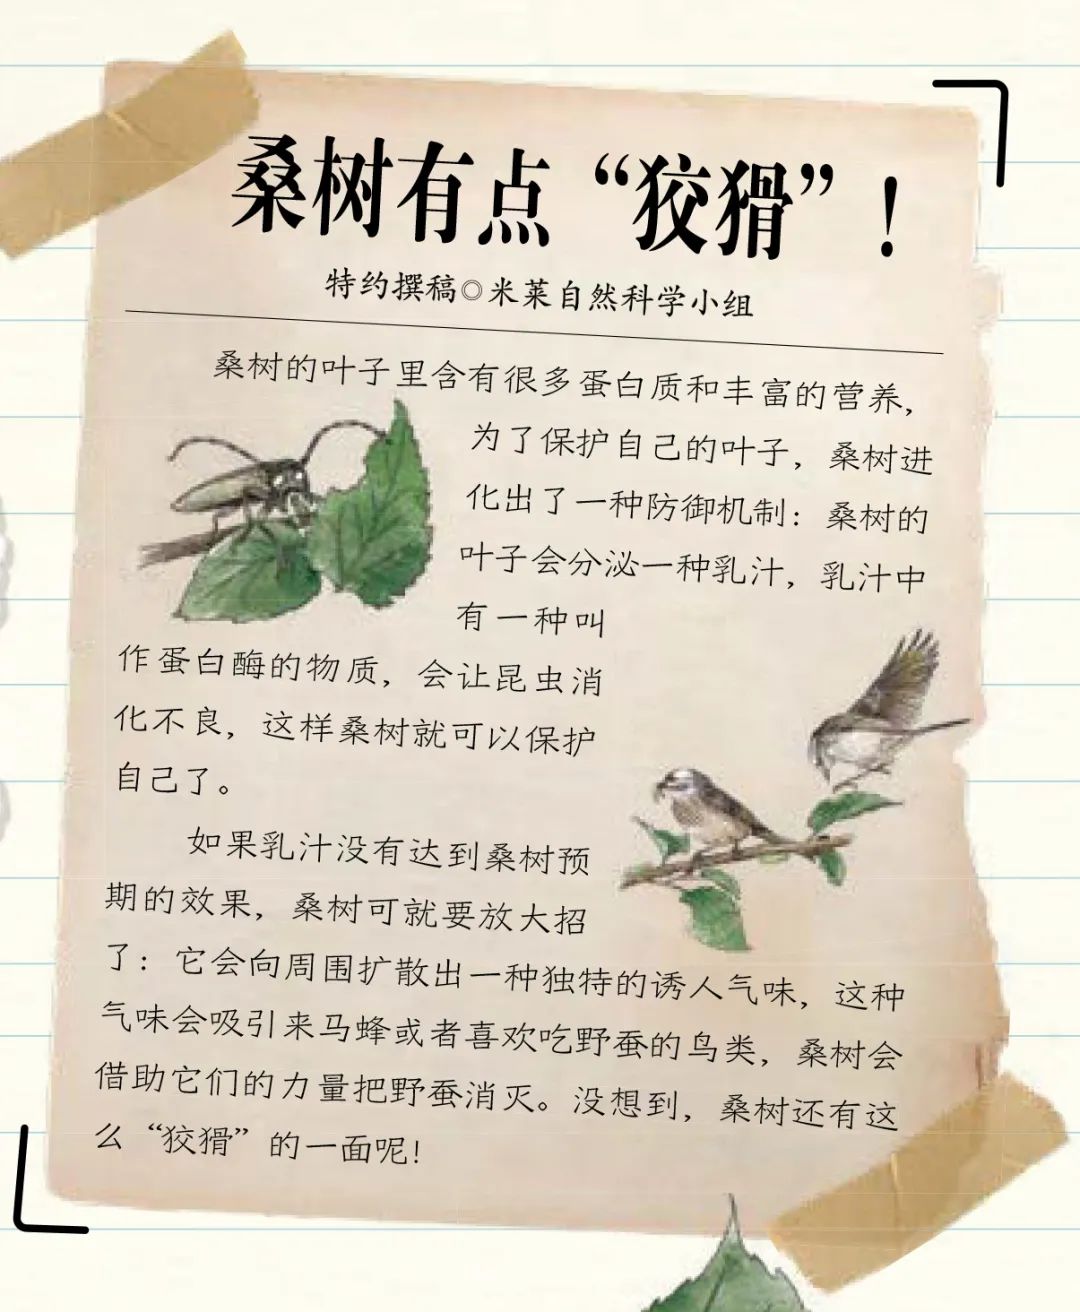 桑树有点“狡猾”！
特约撰稿◎米莱自然科学小组
桑树的叶子里含有很多蛋白质和丰富的营养，
为了保护自己的叶子，桑树进
化出了一种防御机制：桑树的
叶子会分泌一种乳汁，乳汁中
有一种叫
作蛋白酶的物质，会让昆虫消
化不良，这样桑树就可以保护
自己了。
如果乳汁没有达到桑树预
期的效果，桑树可就要放大招
了：它会向周围扩散出一种独特的诱人气味，这种
气味会吸引来马蜂或者喜欢吃野蚕的鸟类，桑树会
借助它们的力量把野蚕消灭。没想到，桑树还有这
么“狡猾”的一面呢！